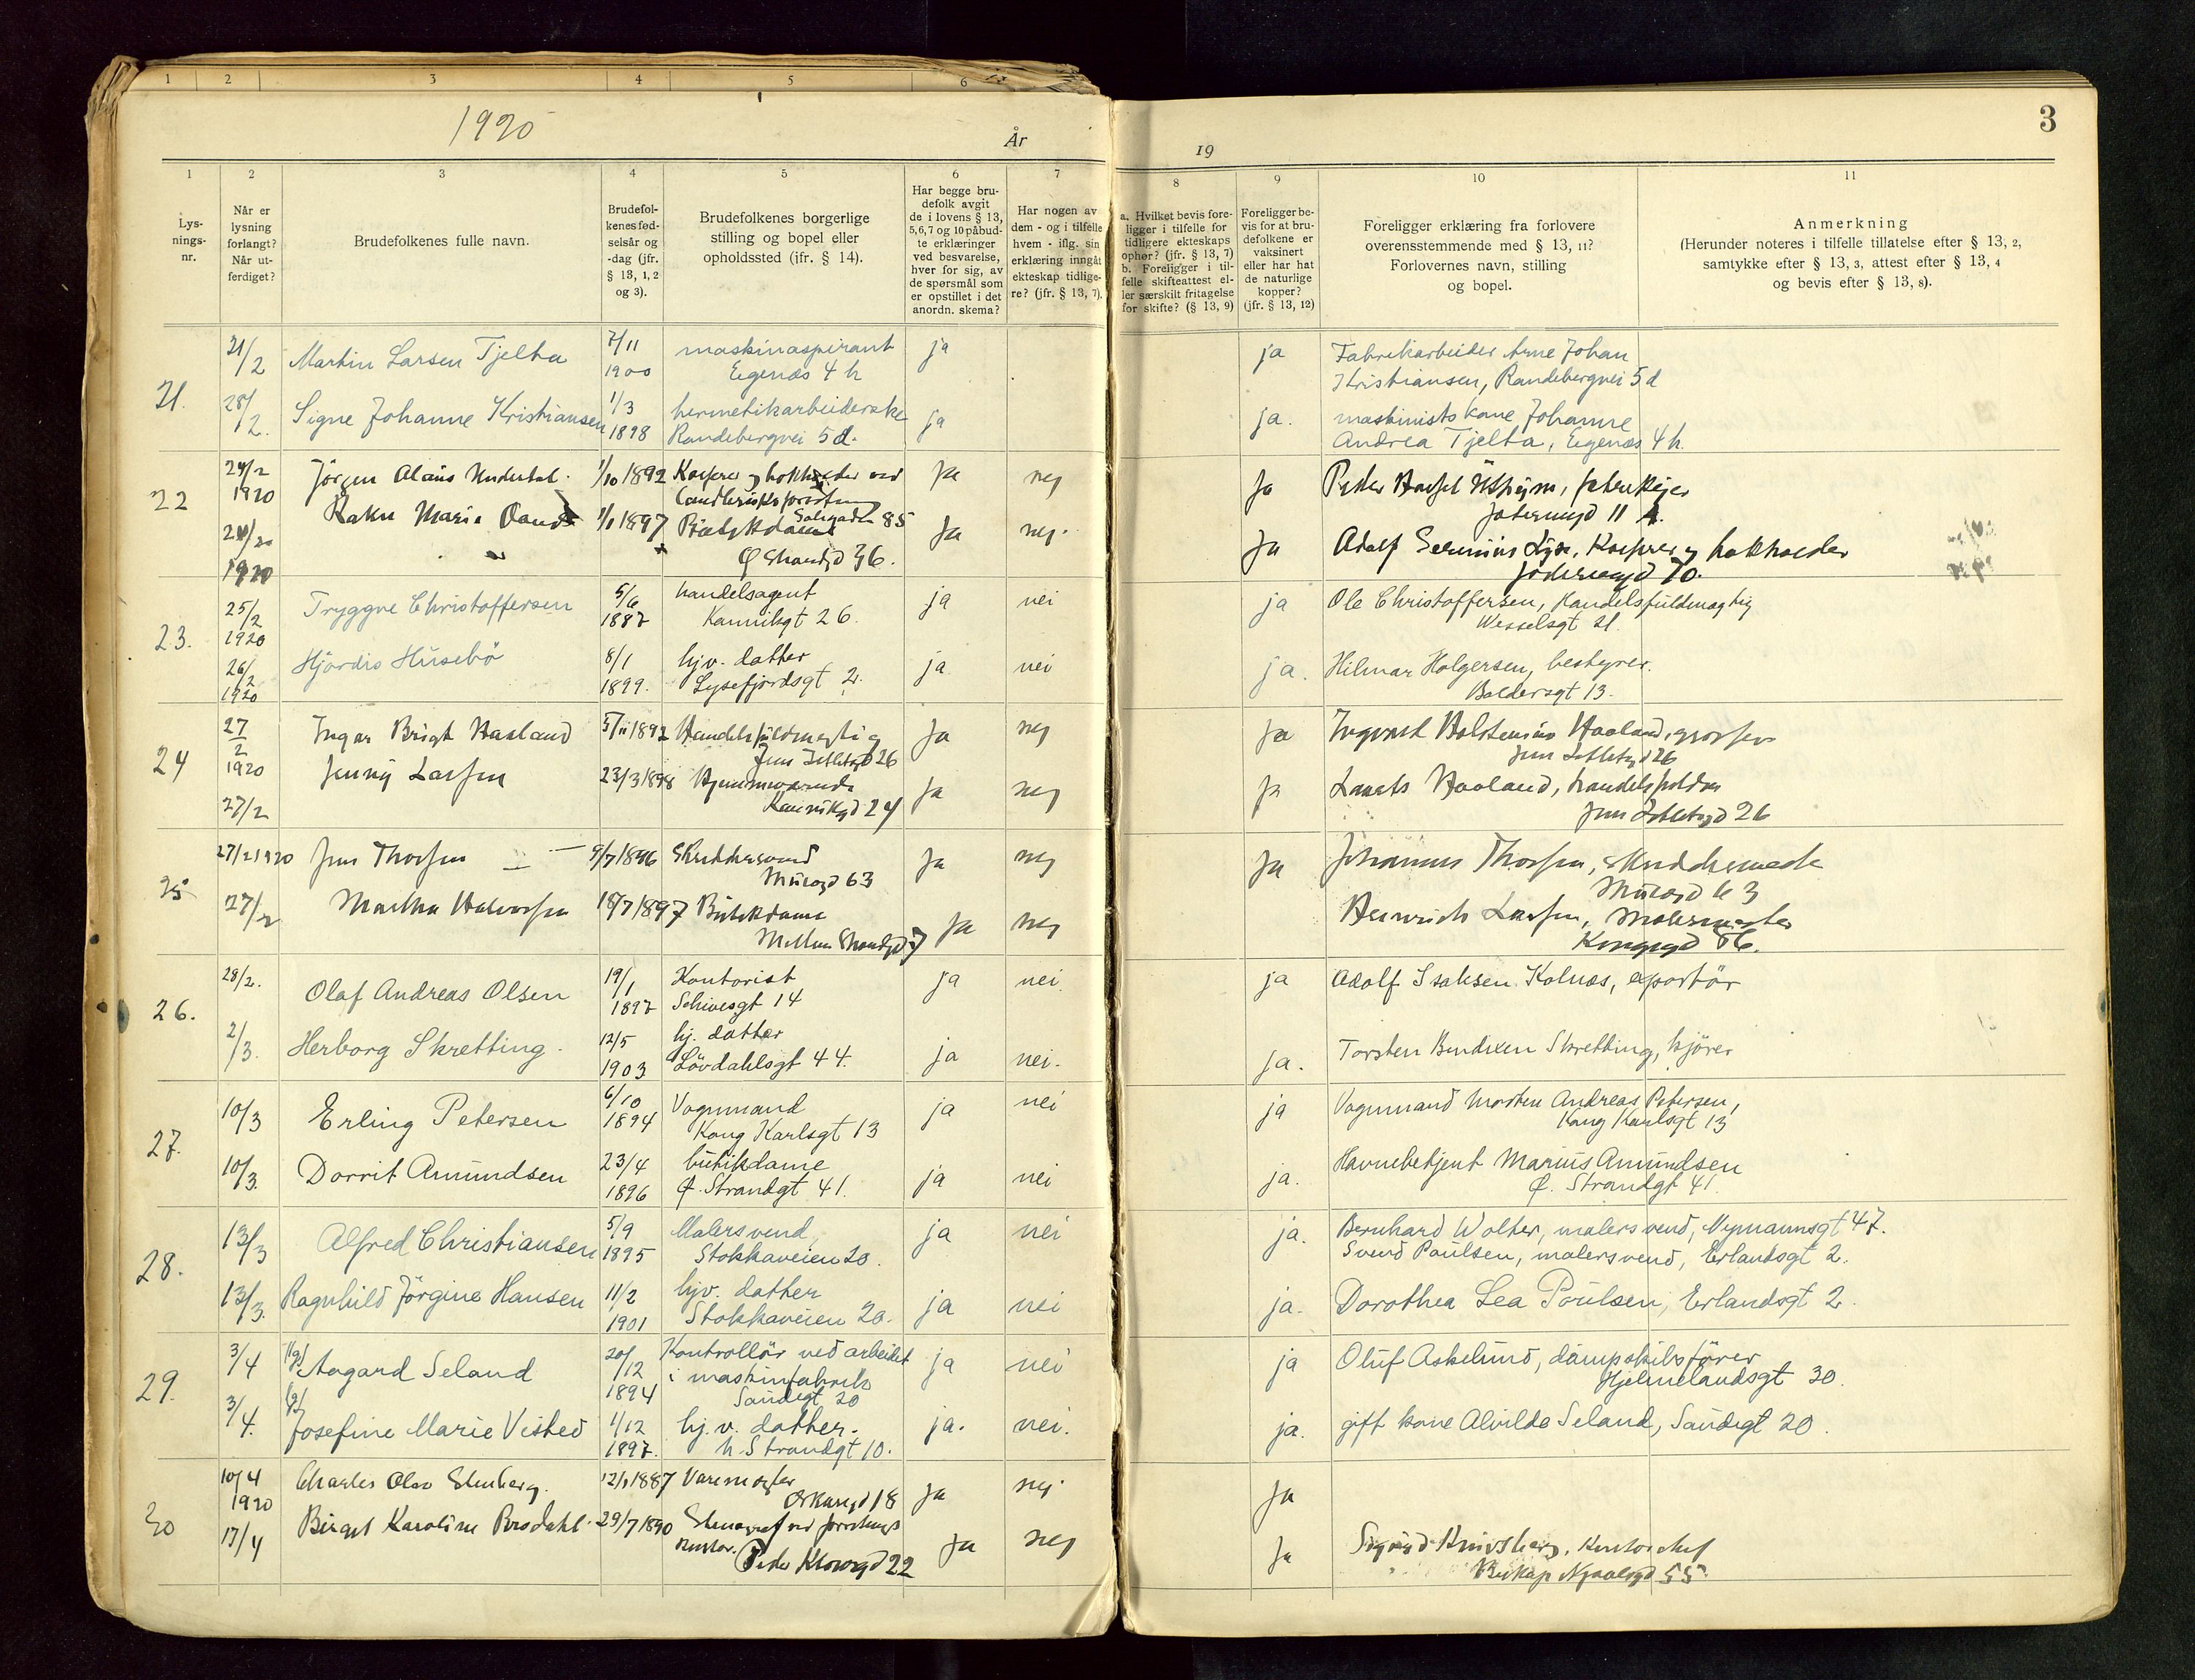 1 2 3 4 5 6
1920 År
19
3
1 2 3 4 5 6 7 8 9 10 11
Lys-
nings-
nr.
Når er
lysning
forlangt?
Når ut-
ferdiget?
Brudefolkenes fulle navn.
Brudefol-
kenes fød-
selsår og
-dag (jfr.
§ 13, 1, 2
og 3).
Brudefolkenes borgerlige
stilling og bopel eller
opholdssted (jfr. § 14).
Har begge bru-
defolk avgit
de i lovens § 13,
5, 6, 7 og 10 påbud-
te erklæringer
ved besvarelse,
hver for sig, av
de spørsmål som
er opstillet i det
anordn. skema?
Har nogen av
dem - og i tilfelle
hvem - iflg. sin
erklæring inngåt
ekteskap tidlige-
re? (jfr. § 13, 7).
a. Hvilket bevis fore-
ligger i tilfelle for
tidligere ekteskaps
ophør? (jfr. § 13, 7)
b. Foreligger i til-
felle skifteattest el-
ler særskilt fritagelse
for skifte? (§ 13, 9)
Foreligger be-
vis for at bru-
defolkene er
vaksinert
eller har hat
de naturlige
kopper?
(jfr. § 13, 12)
Foreligger erklæring fra forlovere
overensstemmende med § 13, 11?
Forlovernes navn, stilling
og bopel.
Anmerkning
(Herunder noteres i tilfelle tillatelse efter § 13, 2,
samtykke efter § 13, 3, attest efter § 13, 4
og bevis efter § 13, 8).
21.
21/2 Martin Larsen Tjelta 7/11 1900 maskinaspirant ja ja Fabrikarbeider Arne Johan
Eigenæs 4 h Kristiansen, Randebergvei 5 d
28/2. Signe Johanne Kristiansen 1/3 1898 hermetikarbeiderske ja ja. maskinists kone Johanne
Randebergvei 5 d. Andrea Tjelta, Eigenæs 4 h.
22
24/2 1920 Jörgen 1/10 1892 ja nej ja Peder
85 11
Marie 1/1 1897 ja nej. ja Adolf
Ø Strandgd 36. 70.
23.
25/2 1920 Tryggve Christoffersen 5/6 1887 handelsagent ja nei ja Ole Christoffersen, Handelsfuldmægtig
Kannikgt 26. Wesselsgt 21.
26/2 1920 Hjördis Husebö 8/1 1899. hjv. datter ja nei ja. Hilmar Holgersen, bestyrer.
Lysefjordsgt 2. Baldersgt 13.
24
27/2 1920 Ingar Brigt Haaland 5/11 1892 Handelsfuldmægtig ja nej ja Ingvart Holstenius Haaland,
26 26
27/2 Jenny Larsen 23/3 1898 ja nej ja Haaland,
Kannikgd 24 26
25
27/2 1920 Jens Thorsen 9/7 1896 Skreddersvend ja nej ja Johannes Thorsen,
Murogd 63 Murogd 63
27/2 Martha Halvorsen 18/7 1897 Butikdame ja nej Henrich Larsen, Malermester
Mellem Strandgd 7 Kongsgd 56.
26.
28/2. Olaf Andreas Olsen 19/1 1897 Kontorist ja nei. ja Adolf Isaksen Kolnæs, eksportör
Schivesgt 14
2/3. Herborg Skretting. 12/5 1903 hj. datter ja nei. ja. Torsten Bendixen Skretting, kjörer
Lövdahlsgt 44.
27.
10/3 Erling Petersen 6/10 1894 Vognmand ja nei ja Vognmand Morten Andreas Petersen,
Kong Karlsgt 13 Kong Karlsgt 13
10/3. Dorrit Amundsen 23/4 1896 butikdame ja nei ja. Havnebetjent Marius Amundsen
Ø. Strandgt 41. Ø. Strandgt 41.
28.
13/3 Alfred Christiansen 5/9 1895 Malersvend, ja nei ja. Bernhard Wolter, malersvend, Nymannsgt 47.
Stokkaveien 20. Svend Poulsen, malersvend, Erlandsgt 2.
13/3. Ragnhild Jörgine Hansen 11/2 1901 hjv. datter ja nei ja. Dorothea Lea Poulsen, Erlandsgt 2.
Stokkaveien 20.
29.
3/4 Aagard Seland 20/12 1894 Kontrollör ved arbeidet ja nei ja Oluf Askelund, dampskibsförer
i maskinfabrik Hjelmelandsgt 30.
Sandgt 20
3/4. Josefine Marie Visted 1/12 1897. hj. v. datter. ja. nei. ja. gift kone Alvilde Seland, Sandgt 20.
n. Strandgt 10.
30
10/4 1920 Charles Olav Stenberg. 12/1 1887 ja nej ja
18
17/4 Birgit Karoline 29/7 1890 Stenograf ved ja nej ja Sigurd Kontorchef
Peder Klowsgd 22 55.